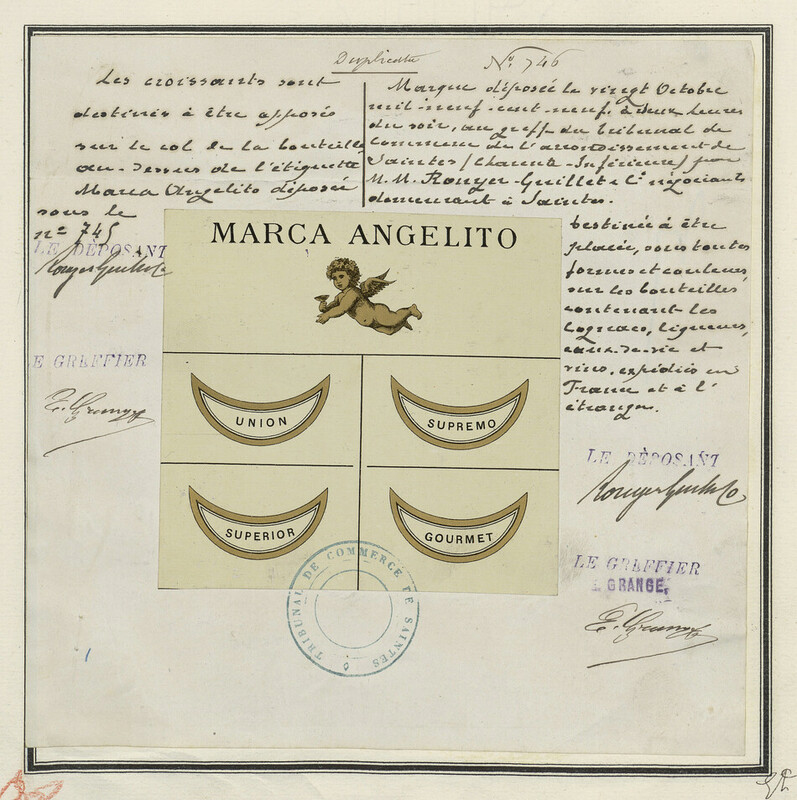 Duplicata
Nº 746
Les croissants sont
destinés à être apposés
sur le col de la bouteille
au-dessus de l'étiquette
Marca Angelito déposée
sous le
nº 745
LE DÉPOSANT
Rouyer Guillet & Co
LE GREFFIER
E. Grange
Marque déposée le vingt Octobre
mil-neuf-cent-neuf, à deux heures
du soir, au greffe du Tribunal de
Commerce de l'arrondissement de
Saintes (Charente-Inférieure) par
M.M. Rouyer-Guillet & Cie négociants
demeurant à Saintes.
Destinée à être
placée, sous toutes
formes et couleurs,
sur les bouteilles
contenant les
Cognacs, liqueurs,
eaux-de-vie et
vins, expédiés en
France et à l'
étranger.
LE DÉPOSANT
Rouyer Guillet & Co
LE GREFFIER
E. GRANGE,
E. Grange
MARCA ANGELITO
UNION
SUPREMO
SUPERIOR
GOURMET
TRIBUNAL DE COMMERCE DE SAINTES